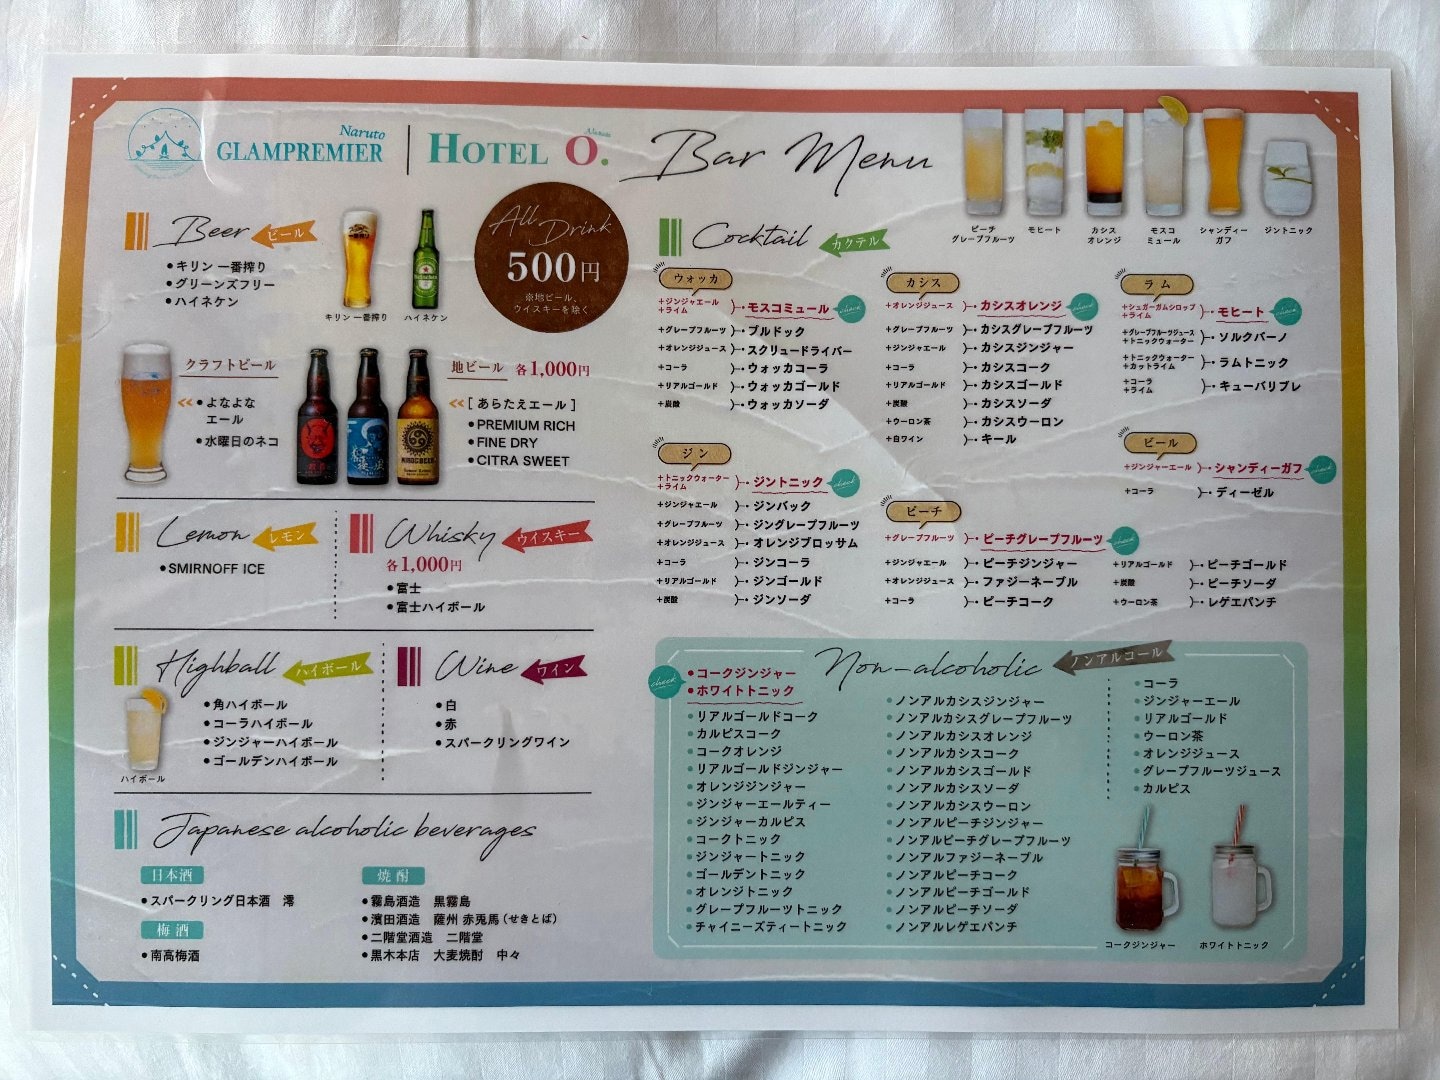 Naruto
GLAMPREMIER
HOTEL O.
Bar Menu
Beer
ビール
キリン 一番搾り
グリーンズフリー
ハイネケン
キリン 一番搾り
ハイネケン
All Drink
500円
※地ビール、
ウイスキーを除く
クラフトビール
よなよな
エール
水曜日のネコ
地ビール 各1,000円
[ あらたえエール ]
PREMIUM RICH
FINE DRY
CITRA SWEET
Lemon
レモン
SMIRNOFF ICE
Whisky
ウイスキー
各1,000円
富士
富士ハイボール
Highball
ハイボール
角ハイボール
コーラハイボール
ジンジャーハイボール
ゴールデンハイボール
ハイボール
Wine
ワイン
白
赤
スパークリングワイン
Japanese alcoholic beverages
日本酒
スパークリング日本酒 澪
梅酒
南高梅酒
焼酎
霧島酒造 黒霧島
濱田酒造 薩州 赤兎馬（せきとば）
二階堂酒造 二階堂
黒木本店 大麦焼酎 中々
ピーチ
グレープフルーツ
モヒート
カシス
オレンジ
モスコ
ミュール
シャンディー
ガフ
ジントニック
Cocktail
カクテル
ウォッカ
+ジンジャエール
+ライム
モスコミュール
check
+グレープフルーツ ブルドック
+オレンジジュース スクリュードライバー
+コーラ ウォッカコーラ
+リアルゴールド ウォッカゴールド
+炭酸 ウォッカソーダ
ジン
+トニックウォーター
+ライム
ジントニック
check
+ジンジャエール ジンバック
+グレープフルーツ ジングレープフルーツ
+オレンジジュース オレンジブロッサム
+コーラ ジンコーラ
+リアルゴールド ジンゴールド
+炭酸 ジンソーダ
カシス
+オレンジジュース カシスオレンジ
check
+グレープフルーツ カシスグレープフルーツ
+ジンジャエール カシスジンジャー
+コーラ カシスコーク
+リアルゴールド カシスゴールド
+炭酸 カシスソーダ
+ウーロン茶 カシスウーロン
+白ワイン キール
ピーチ
+グレープフルーツ ピーチグレープフルーツ
check
+ジンジャエール ピーチジンジャー
+オレンジジュース ファジーネーブル
+コーラ ピーチコーク
+リアルゴールド ピーチゴールド
+炭酸 ピーチソーダ
+ウーロン茶 レゲエパンチ
ラム
+シュガーガムシロップ
+ライム
モヒート
check
+グレープフルーツジュース
+トニックウォーター
ソルクバーノ
+トニックウォーター
+カットライム
ラムトニック
+コーラ
+ライム
キューバリブレ
ビール
+ジンジャーエール シャンディーガフ
check
+コーラ ディーゼル
Non-alcoholic
ノンアルコール
check
コークジンジャー
ホワイトトニック
リアルゴールドコーク
カルピスコーク
コークオレンジ
リアルゴールドジンジャー
オレンジジンジャー
ジンジャーエールティー
ジンジャーカルピス
コークトニック
ジンジャートニック
ゴールデントニック
オレンジトニック
グレープフルーツトニック
チャイニーズティートニック
ノンアルカシスジンジャー
ノンアルカシスグレープフルーツ
ノンアルカシスオレンジ
ノンアルカシスコーク
ノンアルカシスゴールド
ノンアルカシスソーダ
ノンアルカシスウーロン
ノンアルピーチジンジャー
ノンアルピーチグレープフルーツ
ノンアルファジーネーブル
ノンアルピーチコーク
ノンアルピーチゴールド
ノンアルピーチソーダ
ノンアルレゲエパンチ
コーラ
ジンジャーエール
リアルゴールド
ウーロン茶
オレンジジュース
グレープフルーツジュース
カルピス
コークジンジャー
ホワイトトニック